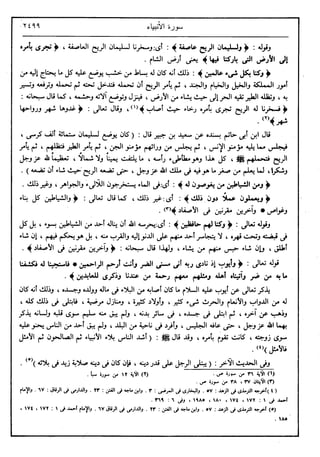 سورة الأنبياء ٢٤٩٩
وقوله : ﴿ ولسليمان الريح عاصفة ﴾ : أي : وسخرنا لسليمان الريح العاصفة ، ﴿ تجري بأمره
إلى الأرض التي باركنا فيها ﴾ يعني أرض الشام .
﴿ وكنا بكل شيء عالمين ﴾ : ذلك أنه كان له بساط من خشب يوضع عليه كل ما يحتاج إليه من
أمور المملكة والخيل والخيام والجند ، ثم يأمر الريح أن تحمله فتدخل تحته ثم تحمله وترفعه وتسير
به ، وتظله الطير تقيه الحر إلى حيث يشاء من الأرض ، فينزل وتوضع آلاته وحشمه ، كما قال سبحانه :
﴿ فسخرنا له الريح تجري بأمره رخاء حيث أصاب ﴾ (١) ، وقال تعالى : ﴿ غدوها شهر ورواحها
شهر ﴾ (٢) .
قال ابن أبي حاتم بسنده عن سعيد بن جبير قال : ( كان يوضع لسليمان ستمائة ألف كرسي ،
فيجلس مما يليه مؤمنو الإنس ، ثم يجلس من ورائهم مؤمنو الجن ، ثم يأمر الطير فتظلهم ، ثم يأمر
الريح فتحملهم ﷺ ، كل هذا وهو مطأطىء رأسه ، ما يلتفت يميناً ولا شمالاً ، تعظيماً لله عز وجل
وشكراً ، لما يعلم من صغر ما هو فيه في ملك الله عز وجل ، حتى تضعه الريح حيث شاء أن تضعه ) .
﴿ ومن الشياطين من يغوصون له ﴾ : أي : في الماء يستخرجون اللآلىء والجواهر ، وغير ذلك .
﴿ ويعملون عملاً دون ذلك ﴾ : أي : غير ذلك ، كما قال تعالى : ﴿ والشياطين كل بناء
وغواص * وآخرين مقرنين في الأصفاد ﴾ (٣) .
﴿ وكنا لهم حافظين ﴾ : أي : يحرسه الله أن يناله أحد من الشياطين بسوء ، بل كل
في قبضته وتحت قهره ، لا يتجاسر أحد منهم على الدنو إليه والقرب منه ، بل هو يحكم فيهم ، إن شاء
أطلق ، وإن شاء حبس منهم من يشاء ، ولهذا قال سبحانه : ﴿ وآخرين مقرنين في الأصفاد ﴾ .
قوله تعالى : ﴿ وأيوب إذ نادى ربه أني مسني الضر وأنت أرحم الراحمين * فاستجبنا له فكشفنا
ما به من ضر وآتيناه أهله ومثلهم معهم رحمة من عندنا وذكرى للعابدين ﴾ .
يذكر تعالى عن أيوب عليه السلام ما كان أصابه من البلاء في ماله وولده وجسده ، وذلك أنه كان
له من الدواب والأنعام والحرث شيء كثير ، وأولاد كثيرة ، ومنازل مرضية ، فابتلي في ذلك كله ،
وذهب عن آخره ، ثم ابتلي في جسده ، في سائر بدنه ، ولم يبق منه سليم سوى قلبه ولسانه يذكر
بهما الله عز وجل ، حتى عافه الجليس ، وأفرد في ناحية من البلد ، ولم يبق أحد من الناس يحنو عليه
سوى زوجته ، كانت تقوم بأمره ، وقد قال ﷺ : ( أشد الناس بلاء الأنبياء ثم الصالحون ثم الأمثل
فالأمثل ) (٤) .
وفي الحديث الآخر : ( يبتلى الرجل على قدر دينه ، فإن كان في دينه صلابة زيد في بلائه ) (٥) .
(١) الآية ٣٦ من سورة ص . (٢) الآية ١٢ من سورة سبأ .
(٣) الآيتان ٣٧ ، ٣٨ من سورة ص .